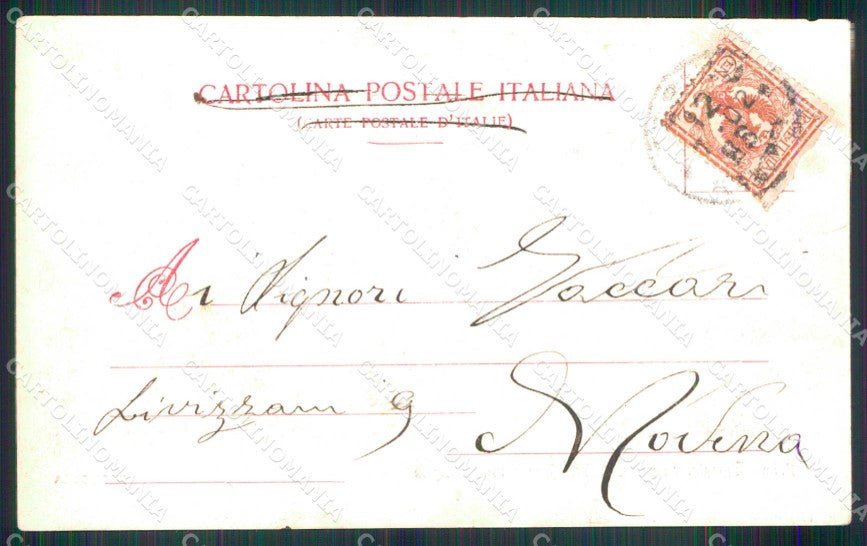 CARTOLINA POSTALE ITALIANA
(CARTE POSTALE D'ITALIE)
Ai Signori Vaccari
Livizzani 9
Modena
CARTOLINOMANIA